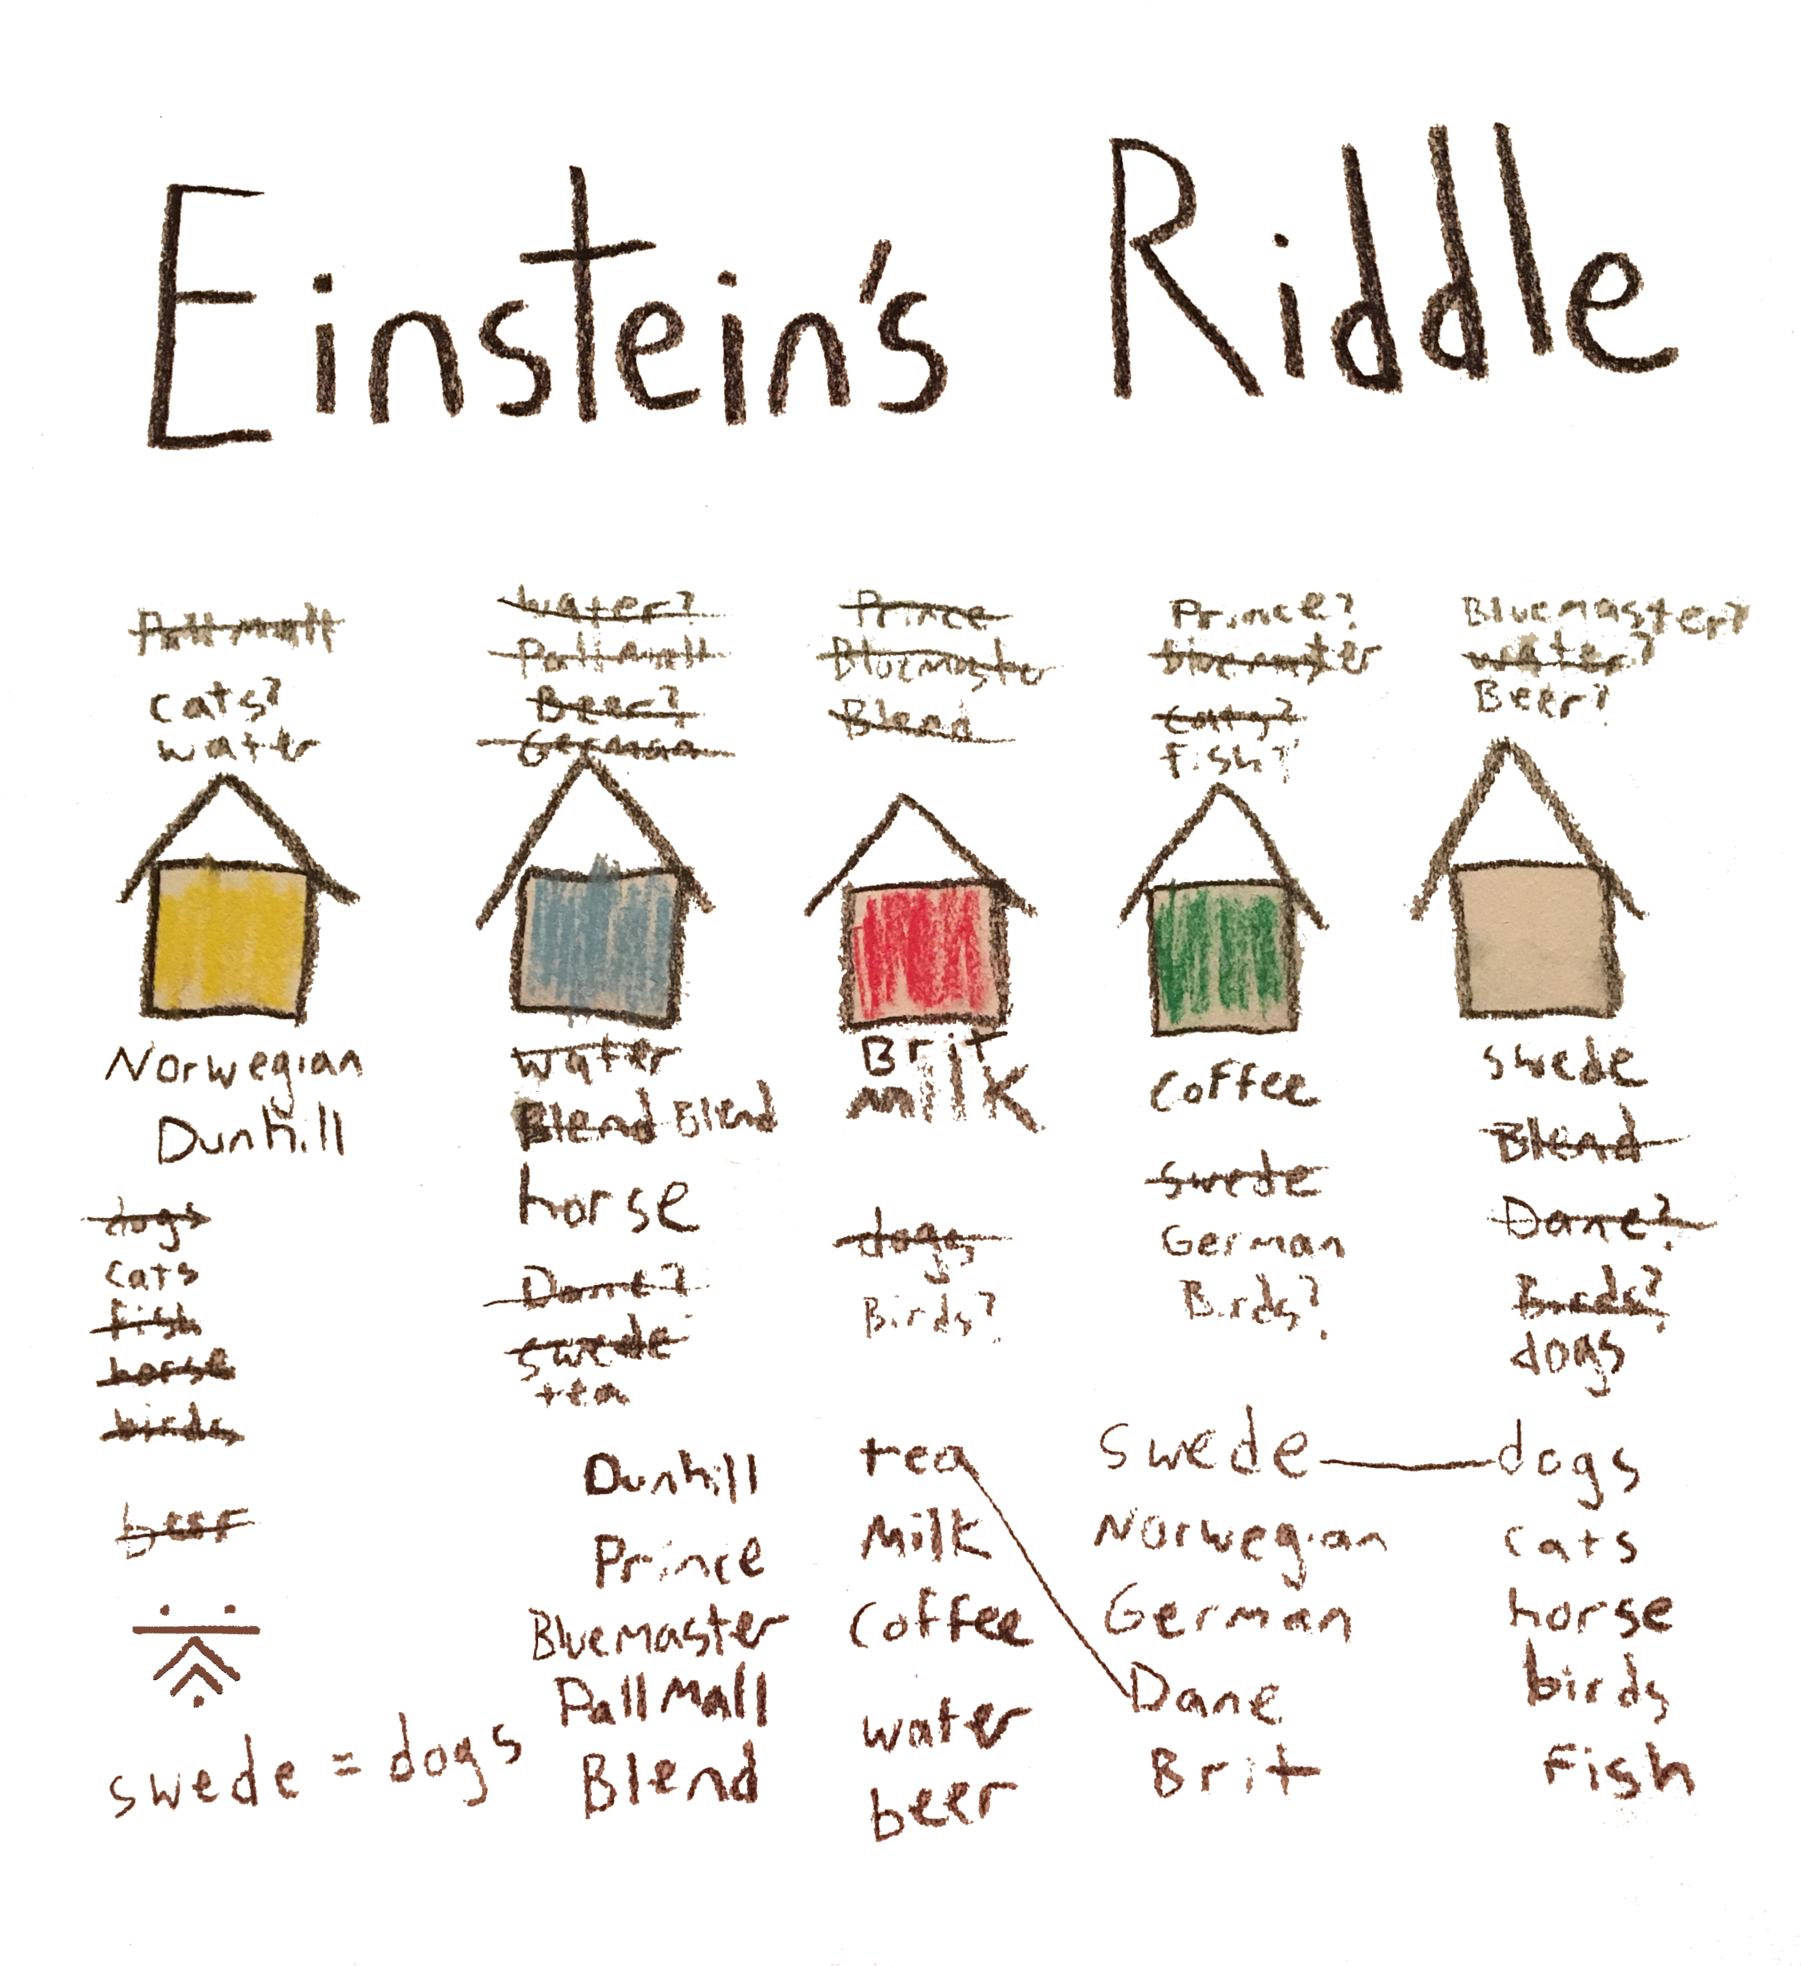 Einstein's Riddle
Pall mall
cats?
water
water?
Pall mall
Beer?
German
Prince
Bluemaster
Blend
Prince?
bluemaster
cats?
fish?
Bluemaster?
water?
Beer?
Norwegian
Dunhill
dogs
cats
fish
horse
birds
beer
water
Blend Blend
horse
Dane?
swede
tea
Brit
milk
dogs
Birds?
coffee
swede
German
Birds?
swede
Blend
Dane?
Birds?
dogs
Dunhill
Prince
Bluemaster
Pall Mall
Blend
tea
Milk
coffee
water
beer
swede
Norwegian
German
Dane
Brit
dogs
cats
horse
birds
Fish
swede = dogs